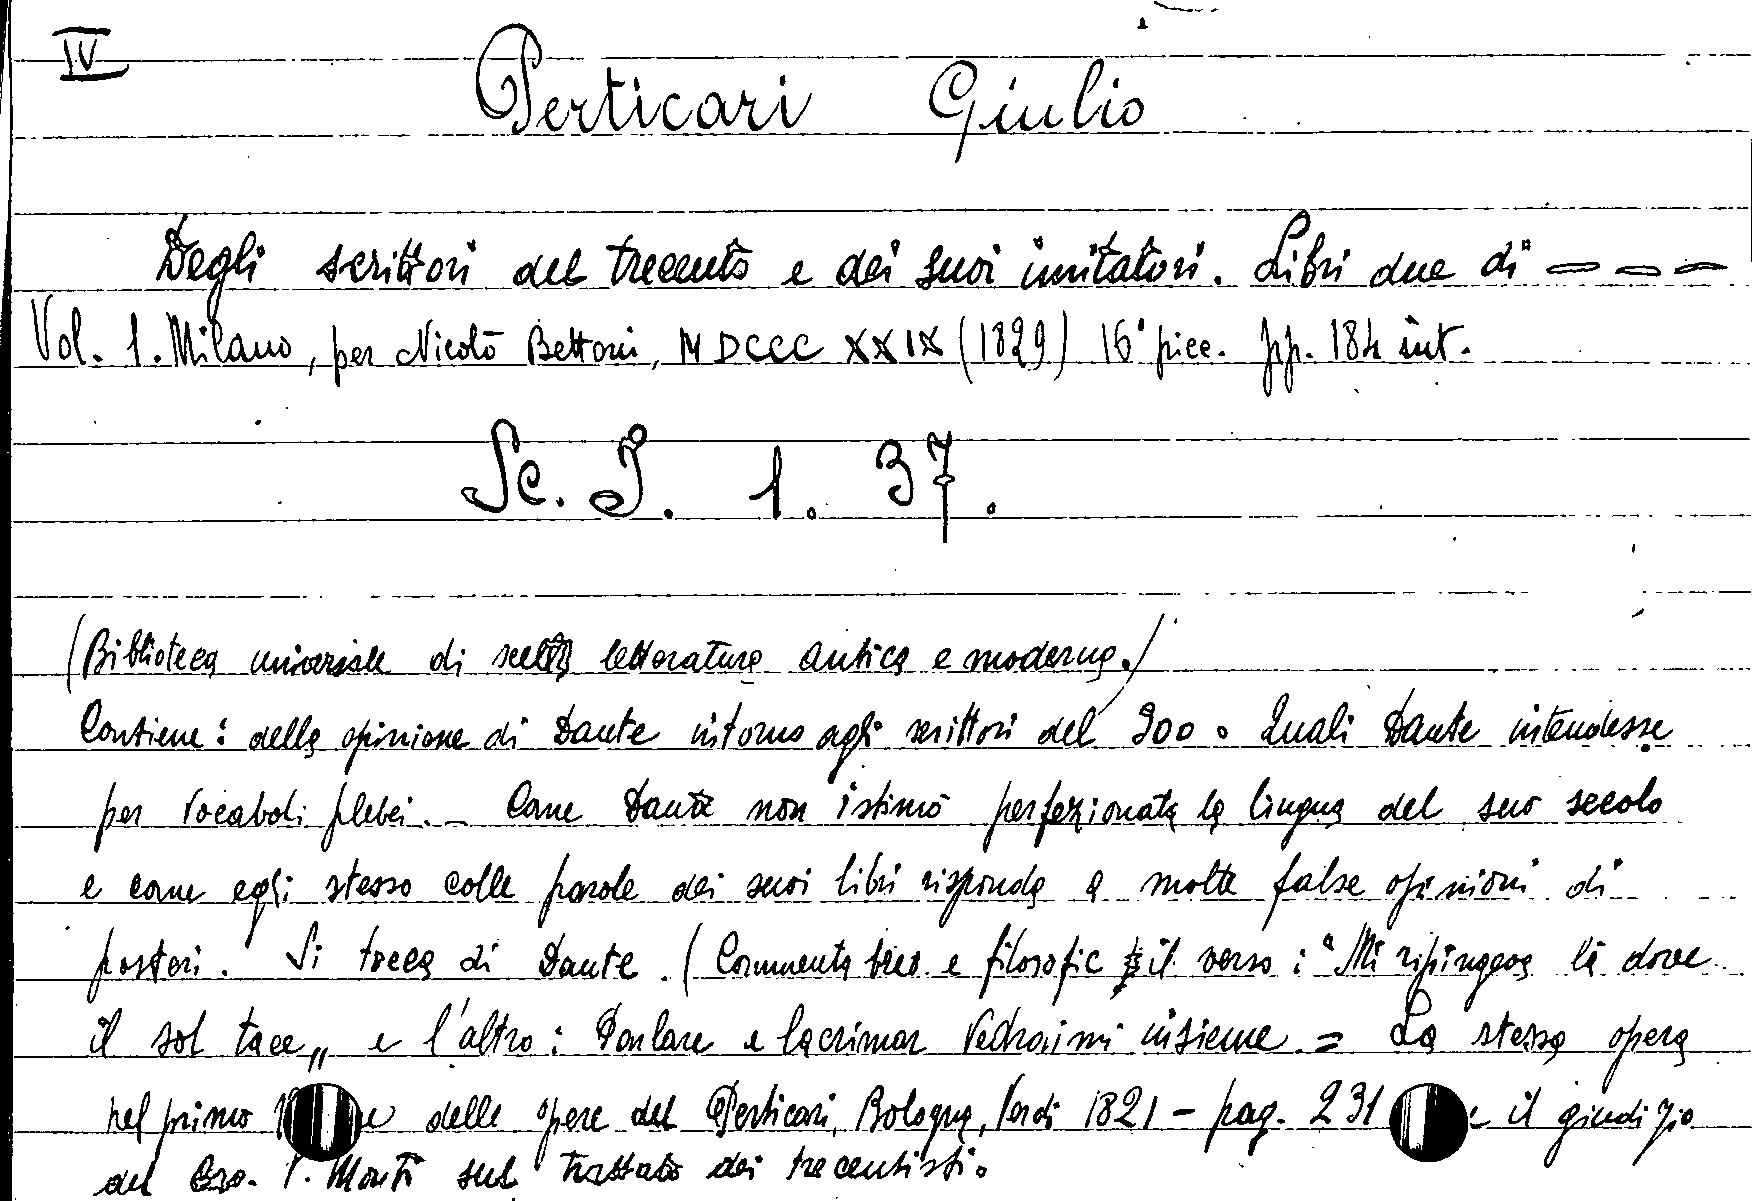 IV
Perticari Giulio
Degli scrittori del trecento e dei suoi imitatori. Libri due di — — —
Vol. 1. Milano, per Nicolò Bettoni, MDCCCXXIX (1829) 16° picc. pp. 184 int.
Sc. I. 1. 37.
(Biblioteca universale di scelta letteratura antica e moderna.)
Contiene: della opinione di Dante intorno agli scrittori del 300. Quali Dante intendesse
per vocaboli plebei. - Come Dante non istimò perfezionata la lingua del suo secolo
e come egli stesso colle parole dei suoi libri risponda a molte false opinioni di
posteri. Si tocca di Dante. (Commenta e filosofic il verso: "Mi ripingeva là dove
il sol tace„ e l'altro: Parlare e lacrimar vedraimi insieme. = La stessa opera
nel primo delle opere del Perticari, Bologna, 1821 - pag. 231 il giudizio
del Monti sul trattato dei trecentisti.